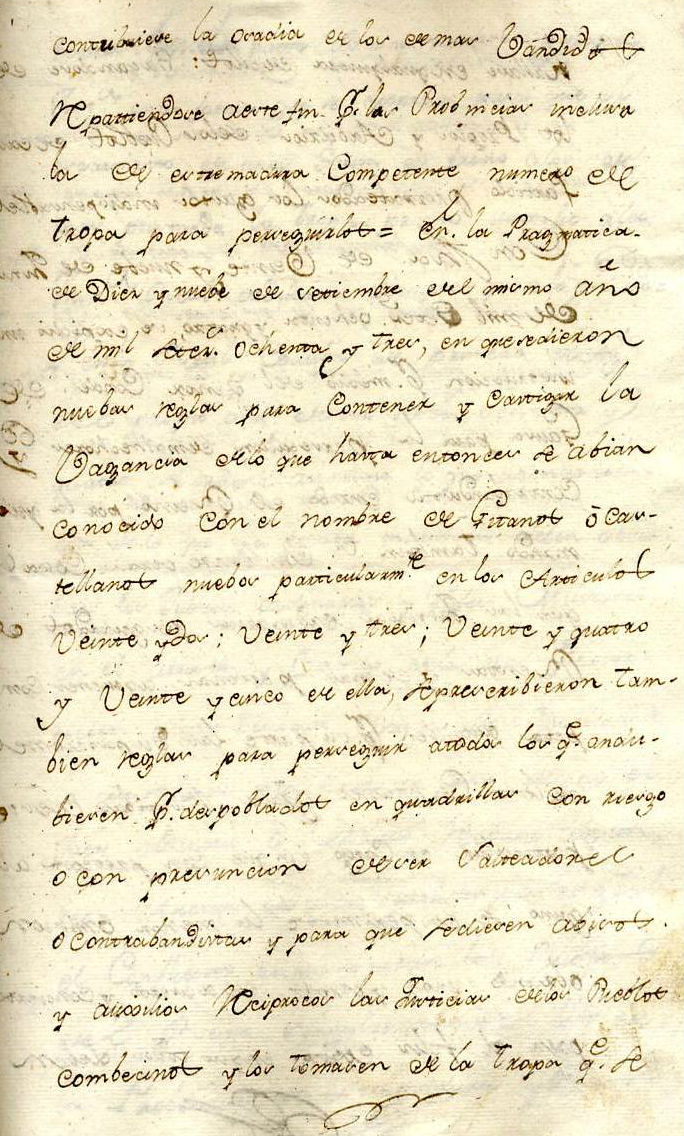 contubiese la osadia de los demas Bandidos
Repartiendose aeste fin. Pr. las Probincias inclusa
la de estremadura Competente numero de
tropa para perseguirlos = En. la Pragmatica.
de Diez y nuebe de Setiembre del mismo año
de mil setec.s ochenta y tres, en quesedieron
nuebas reglas para contener y castigar la
Vagancia delo que hasta entonces se abian
conocido con el nombre de Gitanos ó cas-
tellanos nuebos particularm.te en los Articulos
Veinte ydos; Veinte y tres; Veinte y quatro
y Veinte ycinco de ella, seprescribieron tam-
bien reglas para perseguir atodos los q.e andu-
biesen Pr. despoblados en quadrillas con riesgo
o con presuncion de ser Salteadores
o contrabandistas y para que sediesen abisos.
y auxilios Reciprocos las Justicias delos Pueblos
combecinos y los tomasen de la tropa q.e se